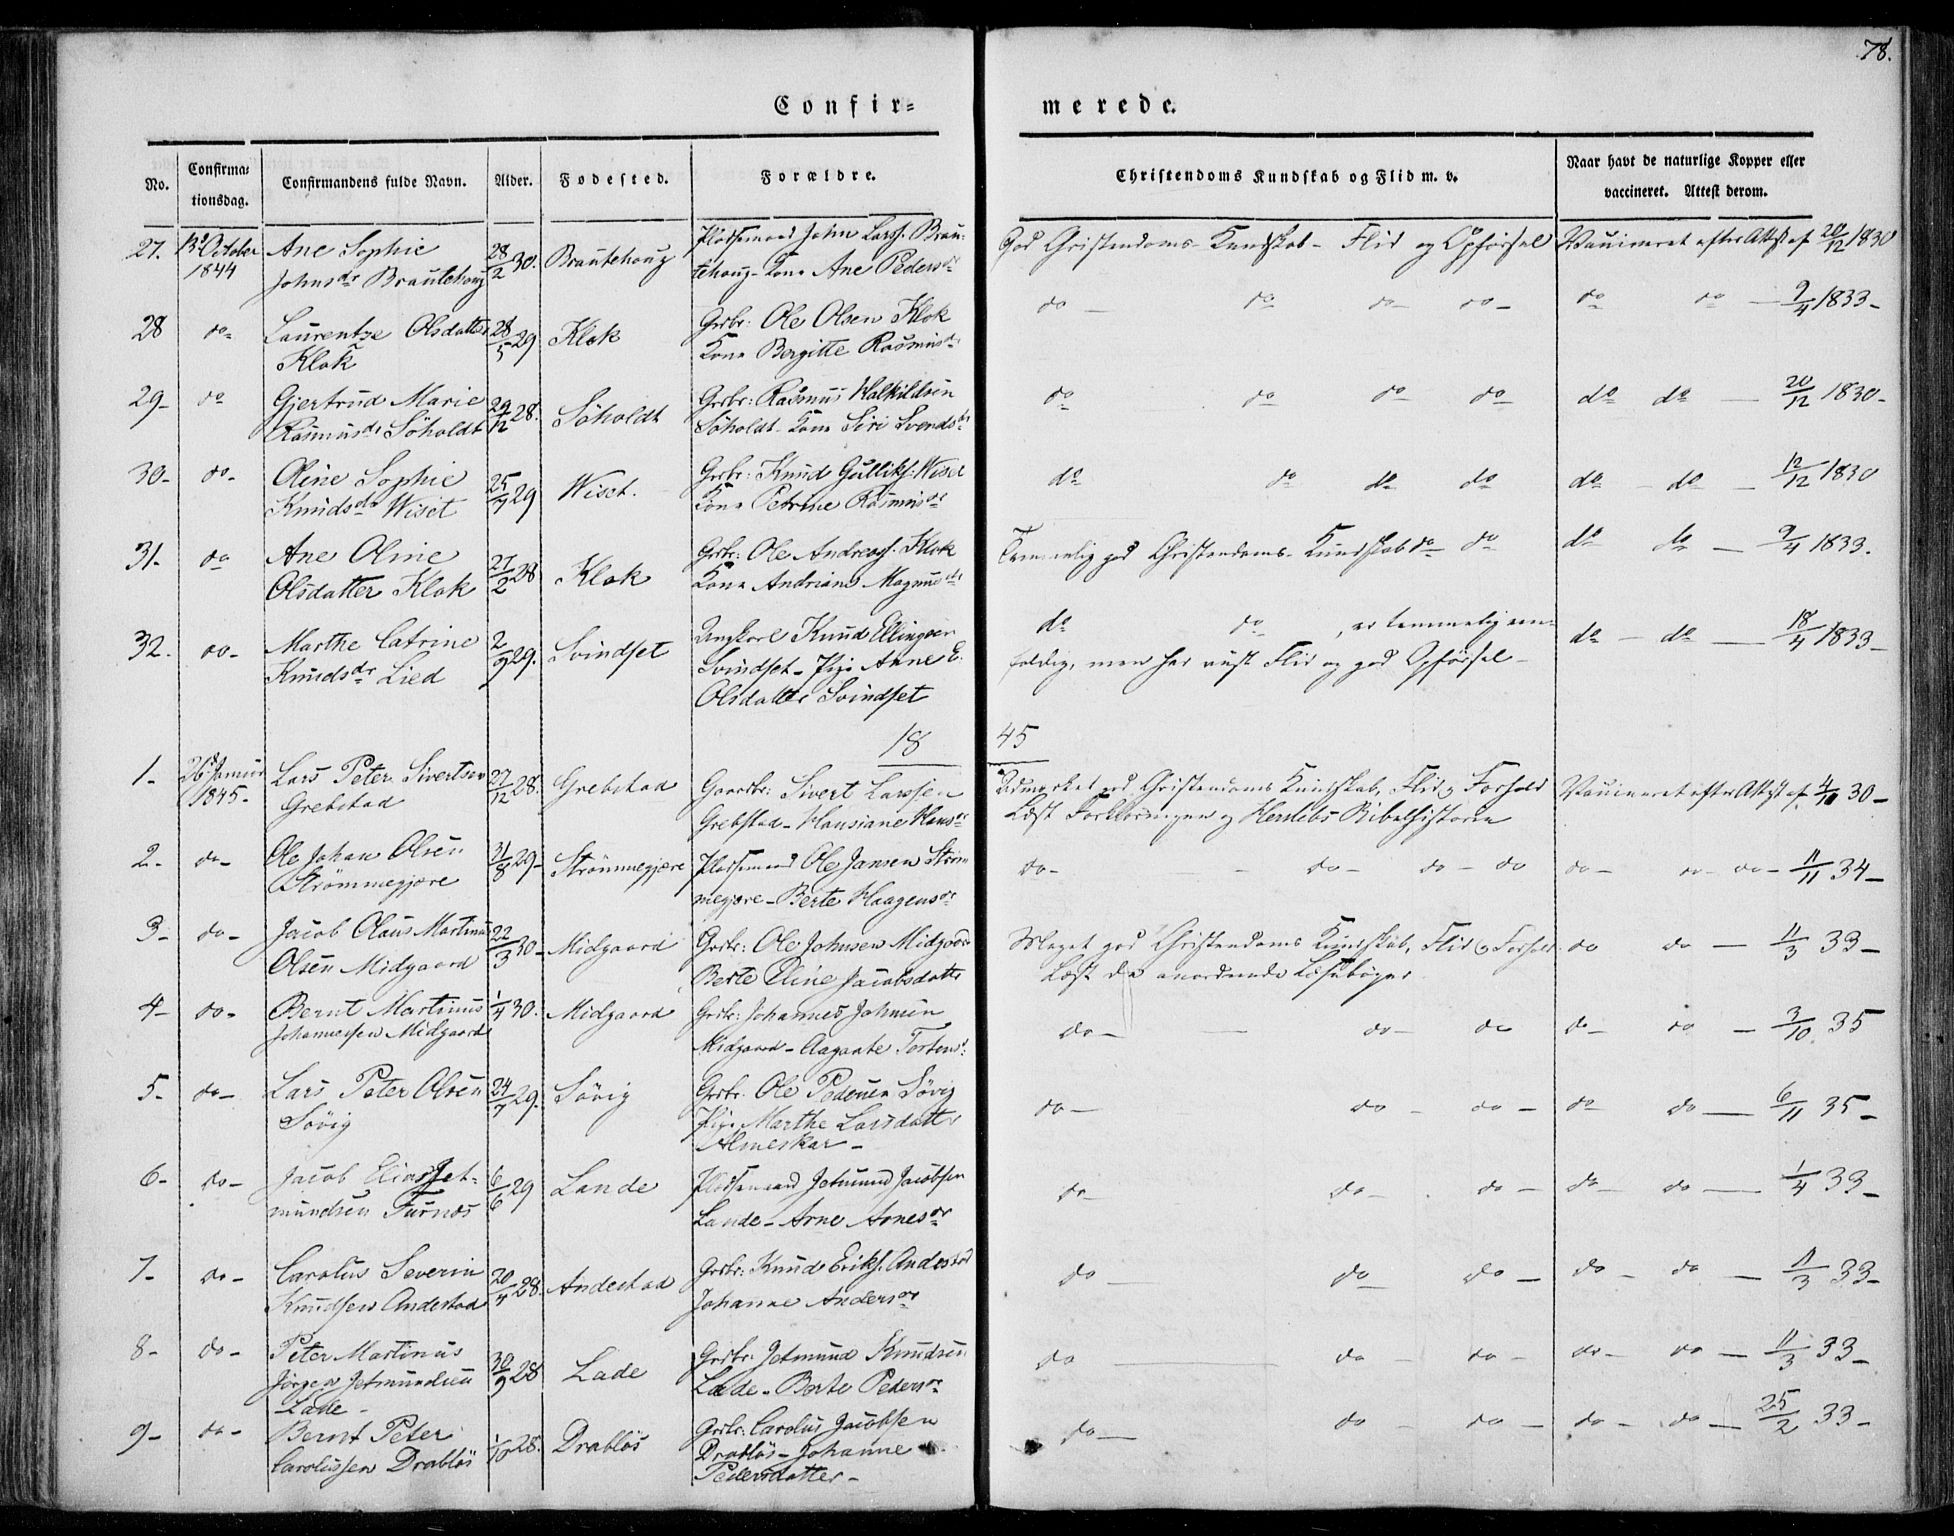 78.
Confir= merede.
No. Confirma= tionsdag. Confirmandens fulde Navn. Alder. Fødested. Forældre. Christendoms Kundskab og Flid m. v. Naar havt de naturlige Kopper eller vaccineret. Attest derom.
27. 13de October Ane Sophie 28/2 30. Brautehoug Pladsemand John Larss. Brau= God Christendoms-Kundskab - Flid og Opførsel Vaccineret efter Attest af 20/12 1830
1844 Johnsdr Brautehoug tehoug - Kone Ane Pedersdr
28 do- Laurentze Olsdatter 28/5 29 Klok Grbr: Ole Olsen Klok do - do do - do - do do - 9/4 1833-
Klok Kone Bergitte Rasmusdr
29- do Gjertrud Marie 29/12 28. Söholdt Grbr: Rasmus Walkildsen do do do do do do - 20/12 1830-
Rasmusdr Söholdt Söholdt - Kone Siri Svendsdr
30- do- Oline Sophie 25/7 29 Wiset. Grbr: Knud Gulliks. Wiset do do do do do - do - 12/12 1830
Knudsdr Wiset Kone Petrine Rasmusdr
31- do Ane Oline 27/2 28 Klok Grbr: Ole Andreass. Klok Temmelig god Christendoms-Kundskab do do do do - 9/4 1833.
Olsdatter Klok Kone Andriane Magnusdr
32. do- Marthe Catrine 2/9 29. Svindset Ungkarl Knud Ellingsen do do, er temmelig een= do - do - 18/4 1833-
Knudsdr Lied Svindset - Pige Anne E. foldig, men har viist Flid og god Opførsel -
Olsdatter Svindset
18 45
1- 26de Januar Lars Peter Sivertsen 27/12 28. Grebstad Gaardbr: Sivert Larssen Udmærket god Christendoms Kundskab, Flid og Forhold Vaccineret efter Attest af 4/10 30-
1845- Grebstad Grebstad - Hansiane Hansdr Læst Forklaringen og Herslebs Bibelhistorie
2- do- Ole Johan Olsen 31/8 29- Strömmegjære Pladsemand Ole Jansen Ström do- - do- do - do do - do - do - 11/11 34-
Strömmegjære megjære - Berte Haagensdr
3- do- Jacob Olaus Martinus 22/3 30- Midgaard Grbr: Ole Johnsen Midgaard Meget god Christendoms Kundskab, Flid og Forhold. do do - 11/3 33-
Olsen Midgaard Berte Eline Jacobsdatter Læst de anordnede Læsebøger
4- do- Bernt Martinus 1/4 30. Midgaard Grbr: Johannes Johnsen do- - do- do do- do - 3/10 35
Johannessen Midgaard Midgaard - Aagaate Torstensdr
5- do- Lars Peter Olsen 24/7 29. Sövig Grbr. Ole Pedersen Sövig do- do - do - do do - 6/11 35-
Sövig Pige Marthe Larsdatter
Almeskar -
6- do- Jacob Elias Jet= 6/6 29 Lande Pladsemand Jetmund Jacobsen do- do- do - do- do - 1/4 33-
mundsen Furnæs Lande - Arne Arnesdr
7- do- Carolus Severin 20/4 28. Andestad Grbr: Knud Eriks. Andestad do - do do - do - do - 11/3 33-
Knudsen Andestad Johanne Andersdr
8- do- Peter Martinus 30/9 28 Lade Grbr: Jetmund Knudsen do - do - do - do- do - 11/3 33-
Jörgen Jetmundsen Lade - Berte Pedersdr
Lade -
9- do- Bernt Peter 1/10 28. Drabløs Grbr: Carolus Jacobsen do - do - do - do - do - 25/2 33-
Carolussen Drabløs Drabløs - Johanne
Pedersdatter -